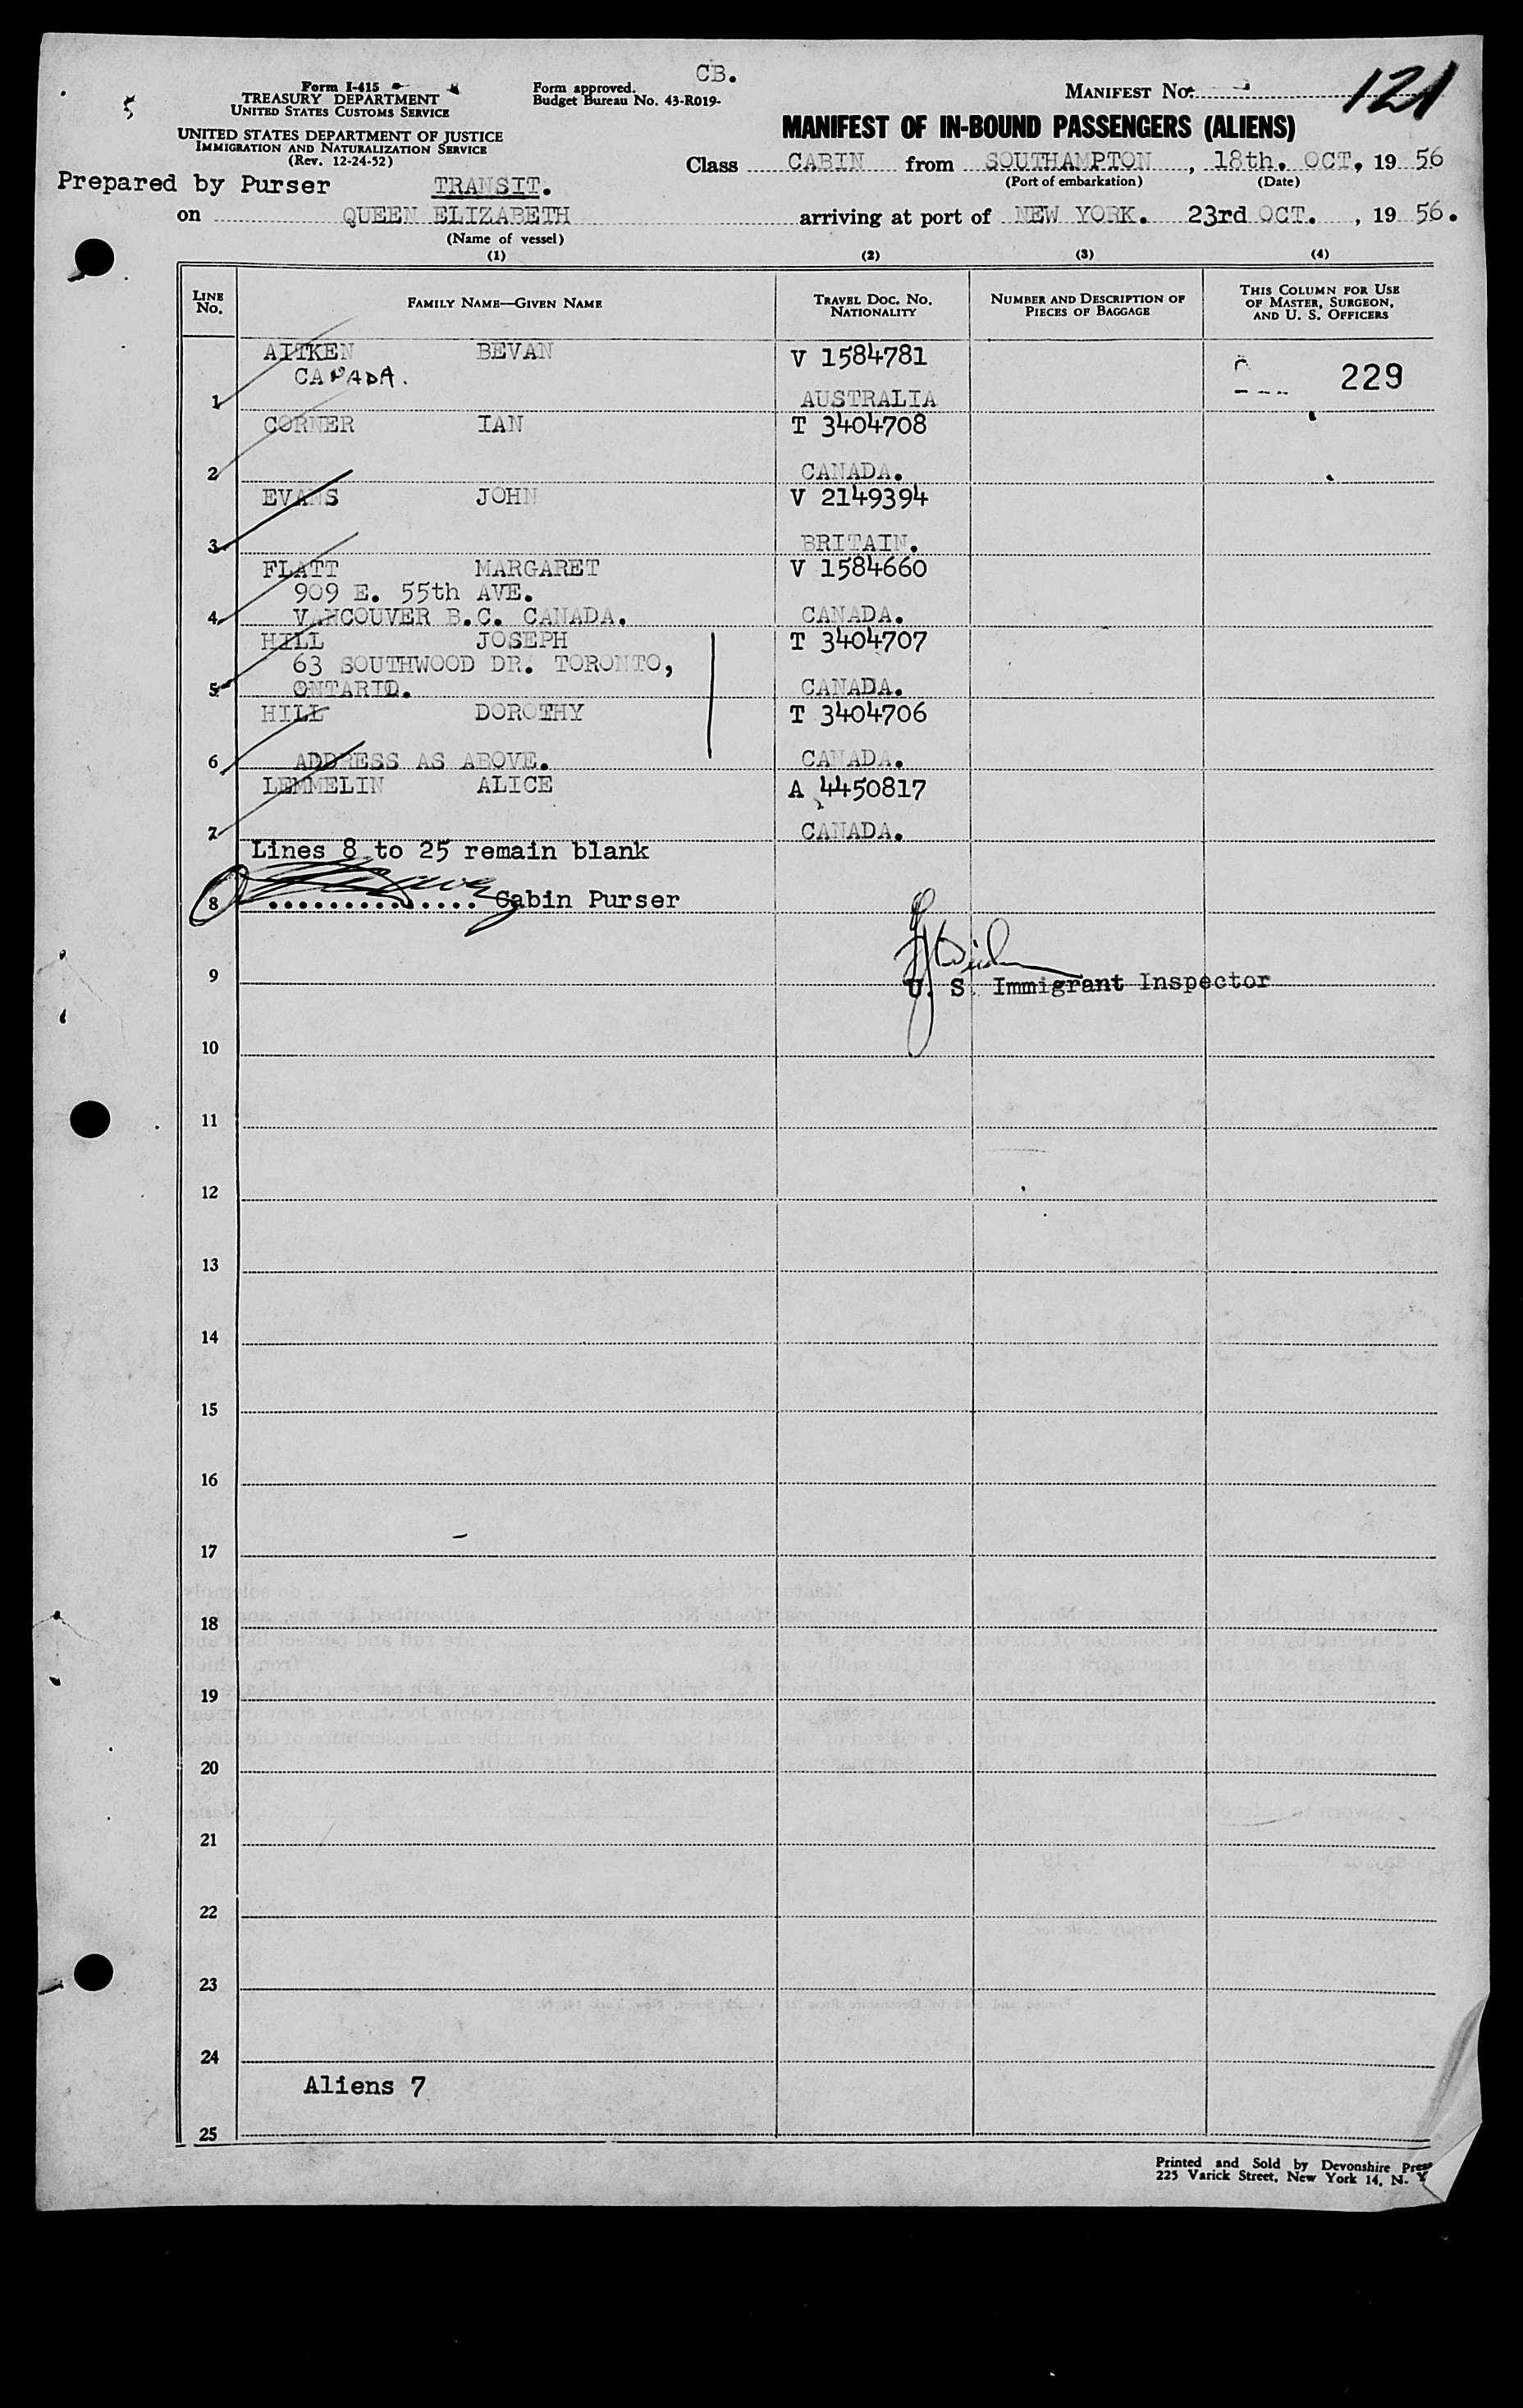 CB.
Form I-415
TREASURY DEPARTMENT
UNITED STATES CUSTOMS SERVICE
Form approved.
Budget Bureau No. 43-R019-
MANIFEST No. 121
UNITED STATES DEPARTMENT OF JUSTICE
IMMIGRATION AND NATURALIZATION SERVICE
(Rev. 12-24-52)
MANIFEST OF IN-BOUND PASSENGERS (ALIENS)
Class CABIN from SOUTHAMPTON, 18th. OCT. 1956
(Port of embarkation) (Date)
Prepared by Purser TRANSIT.
on QUEEN ELIZABETH arriving at port of NEW YORK. 23rd OCT., 1956.
(Name of vessel)
(1) (2) (3) (4)
LINE No. FAMILY NAME—GIVEN NAME TRAVEL DOC. No. NATIONALITY NUMBER AND DESCRIPTION OF PIECES OF BAGGAGE THIS COLUMN FOR USE OF MASTER, SURGEON, AND U. S. OFFICERS
AITKEN BEVAN V 1584781
CANADA. 229
1 AUSTRALIA
CORNER IAN T 3404708
2 CANADA.
EVANS JOHN V 2149394
3 BRITAIN.
FLATT MARGARET V 1584660
909 E. 55th AVE.
4 VANCOUVER B.C. CANADA. CANADA.
HILL JOSEPH T 3404707
63 SOUTHWOOD DR. TORONTO,
5 ONTARIO. CANADA.
HILL DOROTHY T 3404706
6 ADDRESS AS ABOVE. CANADA.
LEMMELIN ALICE A 4450817
7 CANADA.
Lines 8 to 25 remain blank
8 Cabin Purser
9 U. S. Immigrant Inspector
10
11
12
13
14
15
16
17
18
19
20
21
22
23
24
Aliens 7
25
Printed and Sold by Devonshire Press
225 Varick Street, New York 14, N. Y